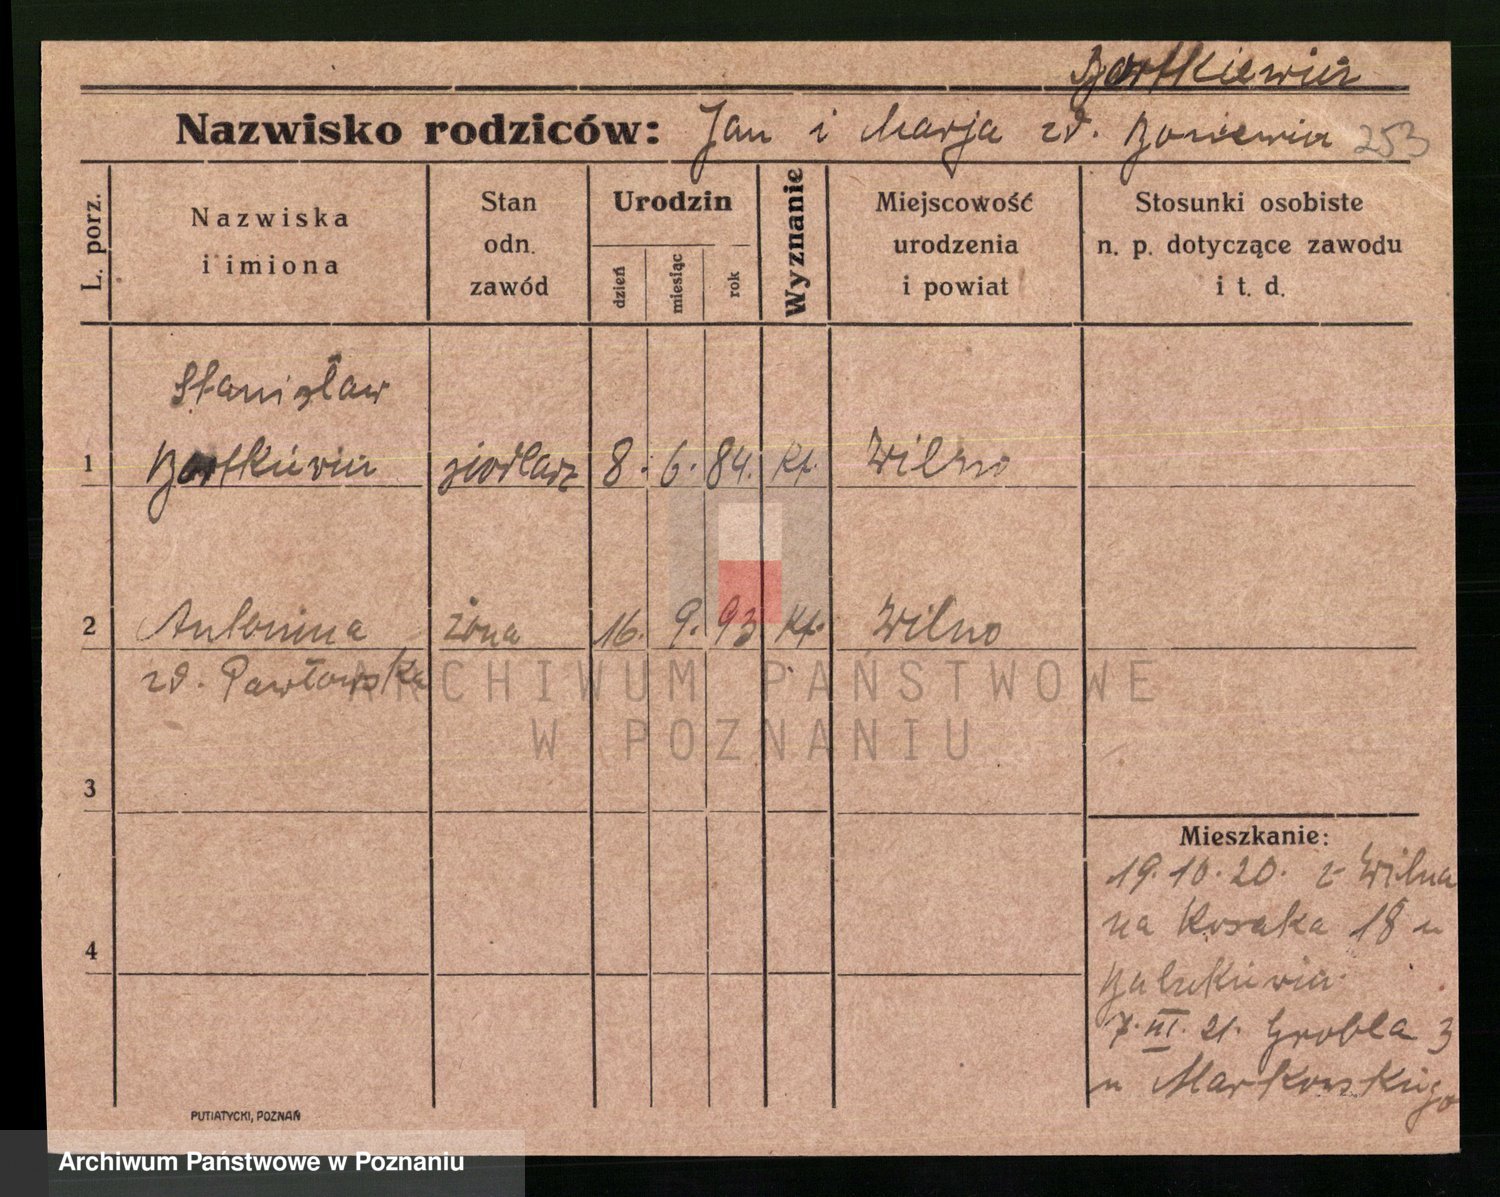 Bartkiewicz
Nazwisko rodziców: Jan i Marja zd. 253
L. porz.
Nazwiska
i imiona
Stan
odn.
zawód
Urodzin
dzień
miesiąc
rok
Wyznanie
Miejscowość
urodzenia
i powiat
Stosunki osobiste
n. p. dotyczące zawodu
i t. d.
Stanisław
1 Bartkiewicz siodlarz 8. 6. 84. kt. Wilno
2 Antonina żona 16. 9. 93 kt. Wilno
zd. Pawłowska
ARCHIWUM PAŃSTWOWE
W POZNANIU
3
Mieszkanie:
19.10.20. z Wilna
na Kosaka 18 u
4
7.III.21. Grobla 3
u Markowskiego
PUTIATYCKI, POZNAŃ
Archiwum Państwowe w Poznaniu